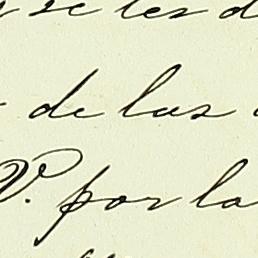 se les d
de las
P. por la